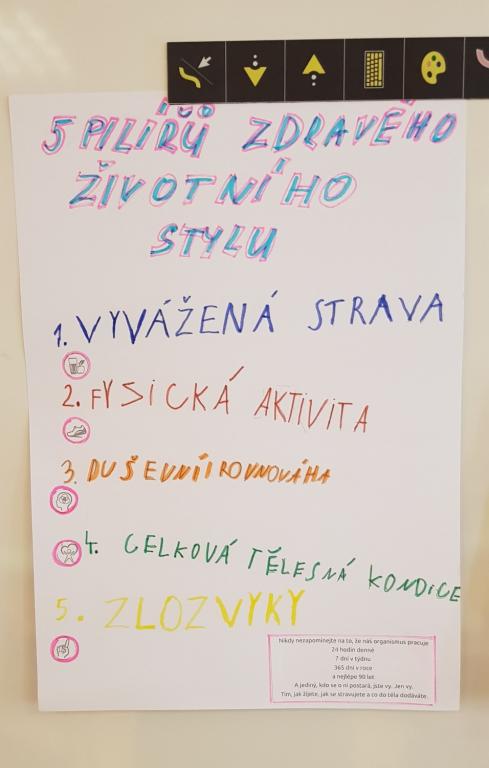 5 PILÍŘŮ ZDRAVÉHO
ŽIVOTNÍHO
STYLU
1. VYVÁŽENÁ STRAVA
2. FYSICKÁ AKTIVITA
3. DUŠEVNÍ ROVNOVÁHA
4. CELKOVÁ TĚLESNÁ KONDICE
5. ZLOZVYKY
Nikdy nezapomínejte na to, že náš organismus pracuje
24 hodin denně
7 dní v týdnu
365 dní v roce
a nejlépe 90 let
A jediný, kdo se o ni postará, jste vy. Jen vy.
Tím, jak žijete, jak se stravujete a co do těla dodáváte.